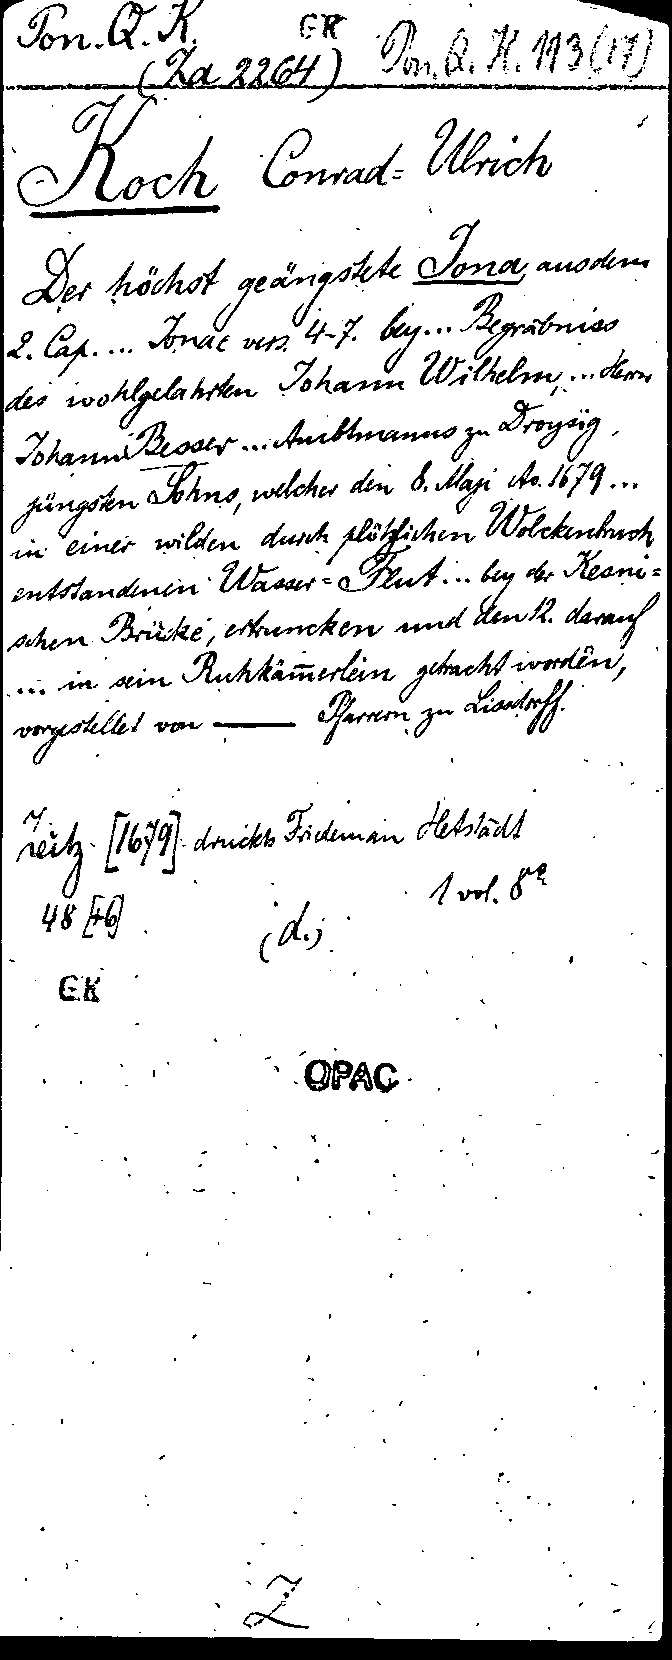 Pon. Q. K. GK
(Za 2264) Pon. Q. K. 113 (17)
Koch Conrad= Ulrich
Der höchst geängstete Jona, aus dem
2. Cap. ... Jonae vers. 4-7. bey ... Begräbniss
des wohlgelahrten Johann Wilhelm, ... Herrn
Johann Besser ... Ambtmanns zu Droysig,
jüngsten Sohns, welcher den 8. Maji Ao. 1679 ...
in einer wilden durch plötzlichen Wolckenbruch
entstandenen Wasser=Flut ... bey der Kesni=
schen Brücke, ertruncken und den 12. darauf
... in sein Ruhkam̄erlein gebracht worden,
vorgestellet von —— Pfarrern zu Lissdorff.
Zeitz [1679] druckts Frideman Hetstädt
48 [+6] 1 vol. 8°
(d.)
GK
OPAC
Z